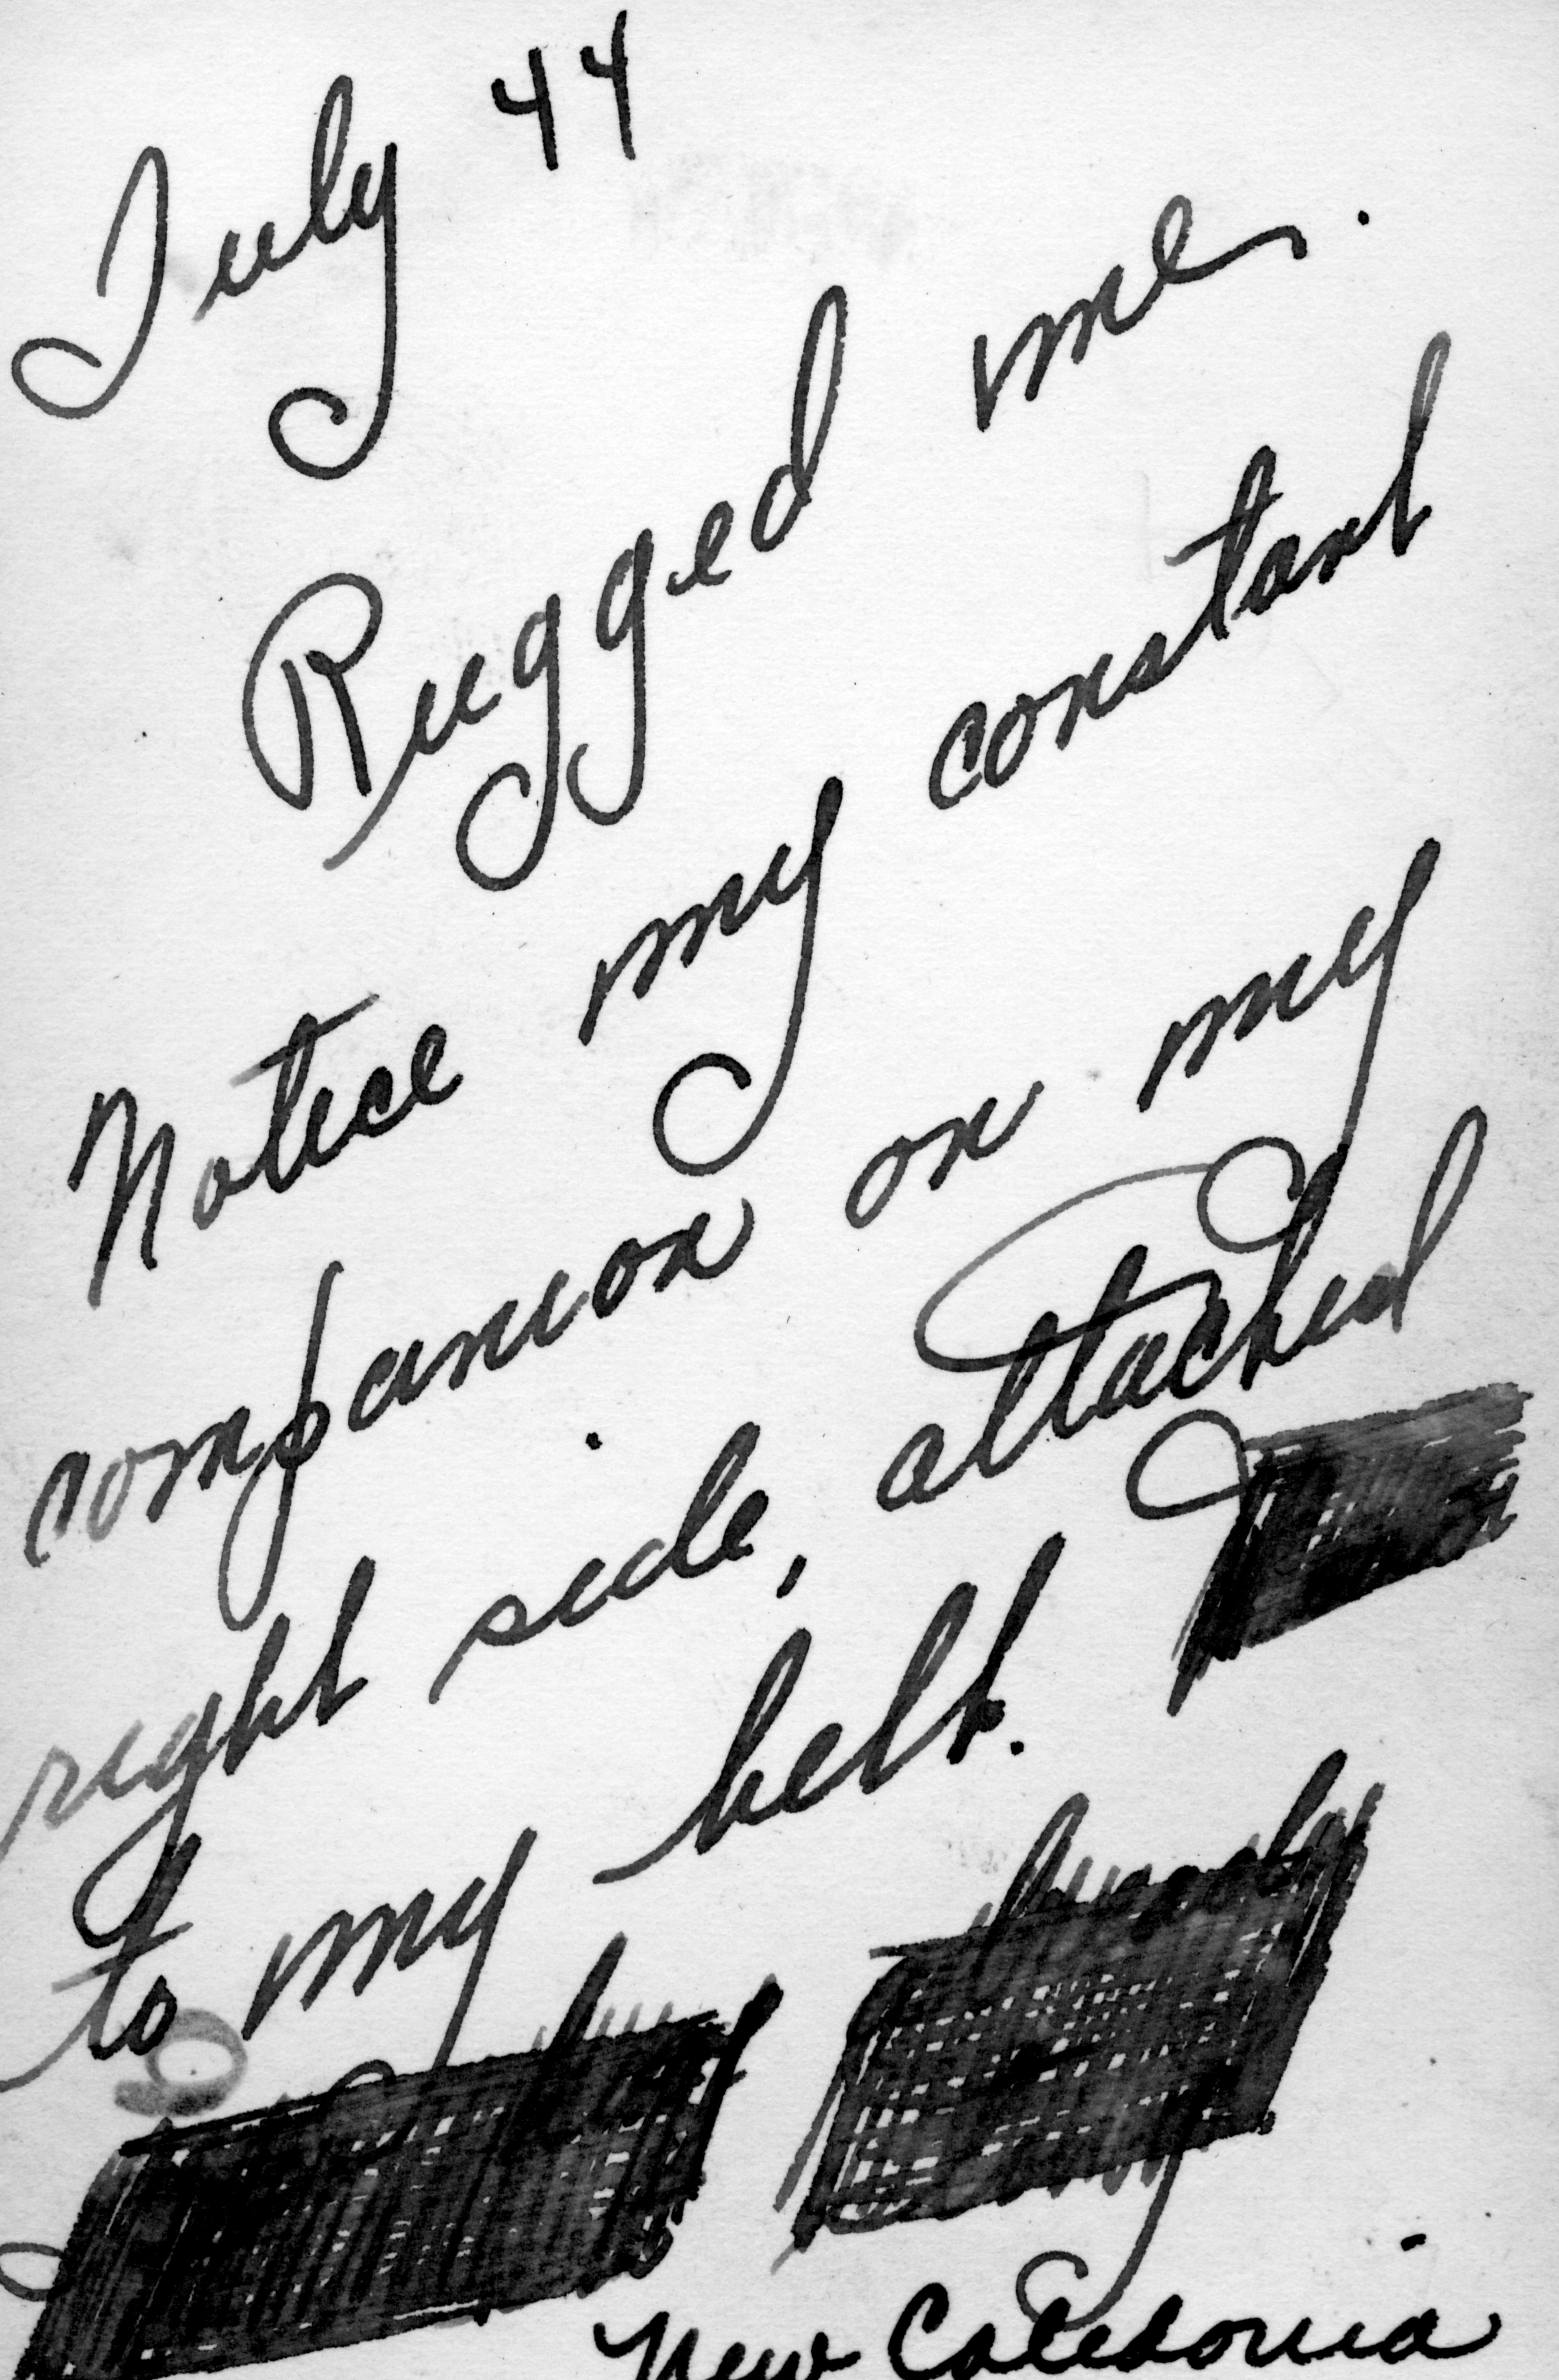 July 44
Rugged me.
Notice my constant
companion on my
right side, attached
to my belt.
New Caledonia